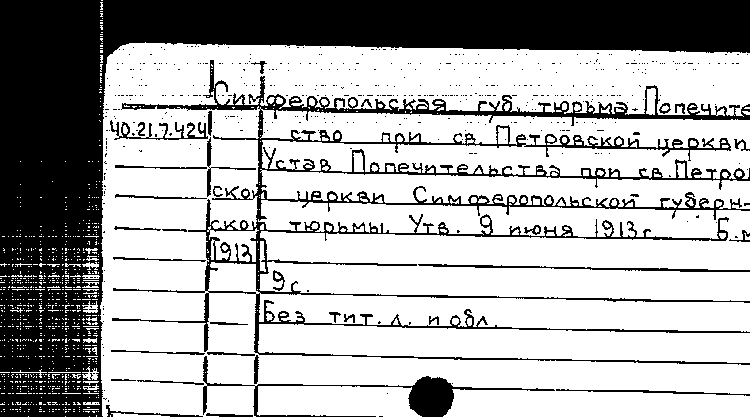 Симферопольская губ. тюрьма. Попечите
40.21.7.424 ство при св. Петровской церкви
Устав Попечительства при св. Петров
ской церкви Симферопольской губерн-
ской тюрьмы. Утв. 9 июня 1913 г. Б.м
[1913].
9 с.
Без тит. л. и обл.